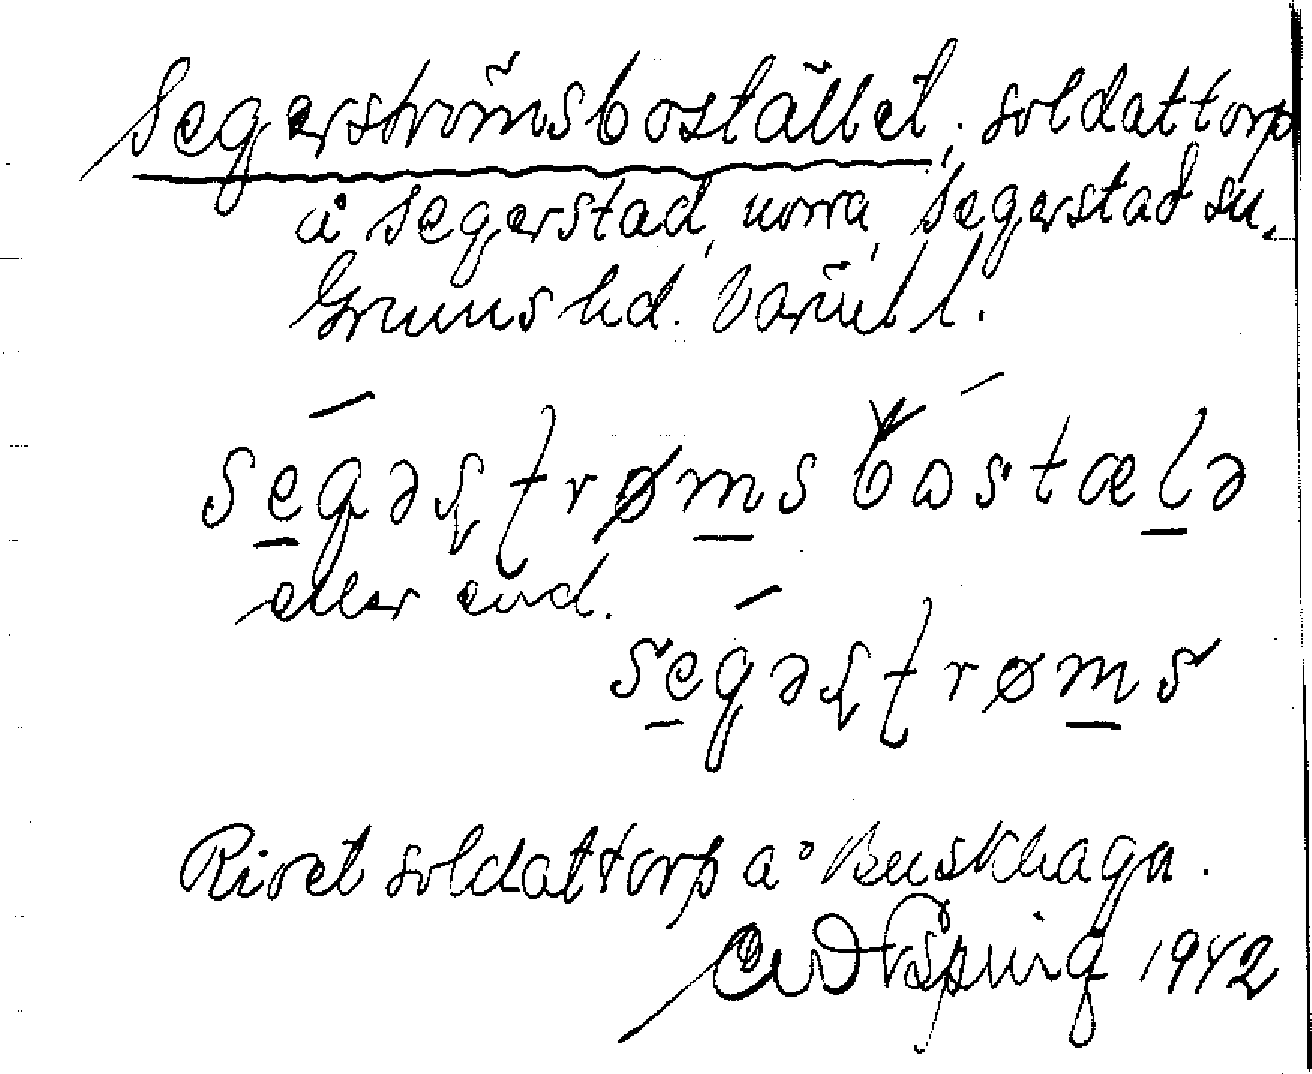 Segerströmsbostället, soldattorp
å Segerstad, norra, Segerstad sn.
Grums hd. Värml l.
segəʂʈrømsbostælə
eller end.
segəʂʈrøms
Rivet soldattorp å Buskhaga.
1942